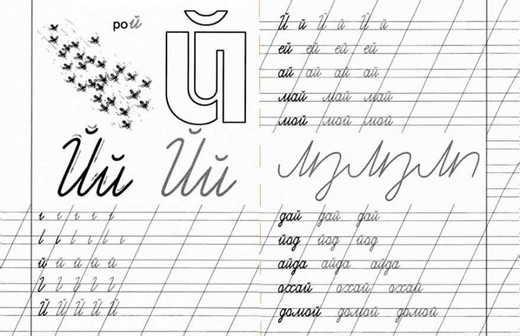 рой
Й
Йй Йй
й й й й й
Й Й Й Й Й
Й й й й Й й
ей ей ей ей
ай ай ай ай
май май май
мой мой мой
дай дай дай
йод йод йод
айда айда айда
охай охай охай
домой домой домой